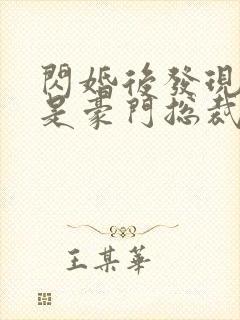 閃婚後發現
是豪門總裁
王某華